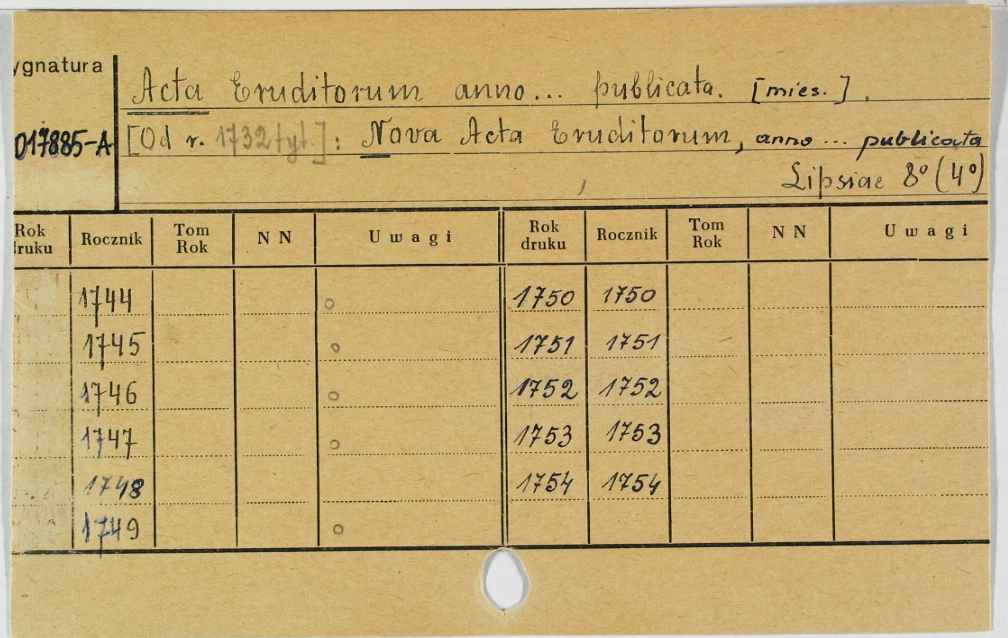 ygnatura
Acta Eruditorum anno... publicata. [mies.].
017885-A
[Od r. 1732 tyt.]: Nova Acta Eruditorum, anno... publicata
Lipsiae 8° (4°)
Rok druku Rocznik Tom Rok NN Uwagi Rok druku Rocznik Tom Rok NN Uwagi
1744 o 1750 1750
1745 o 1751 1751
1746 o 1752 1752
1747 o 1753 1753
1748 1754 1754
1749 o